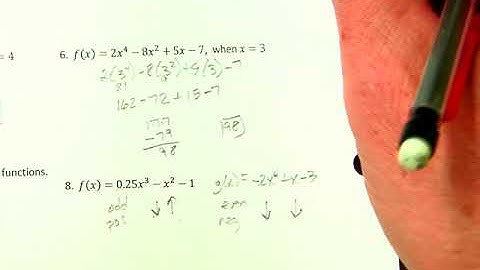 = 4
6. f(x) = 2x⁴ − 8x² + 5x − 7, when x = 3
2(3⁴) − 8(3²) + 5(3) − 7
81 9
162 − 72 + 15 − 7
177
−79
98
98
functions.
8. f(x) = 0.25x³ − x² − 1 g(x) = −2x⁶ + x − 3
odd ↓ ↑ even ↓ ↓
pos neg